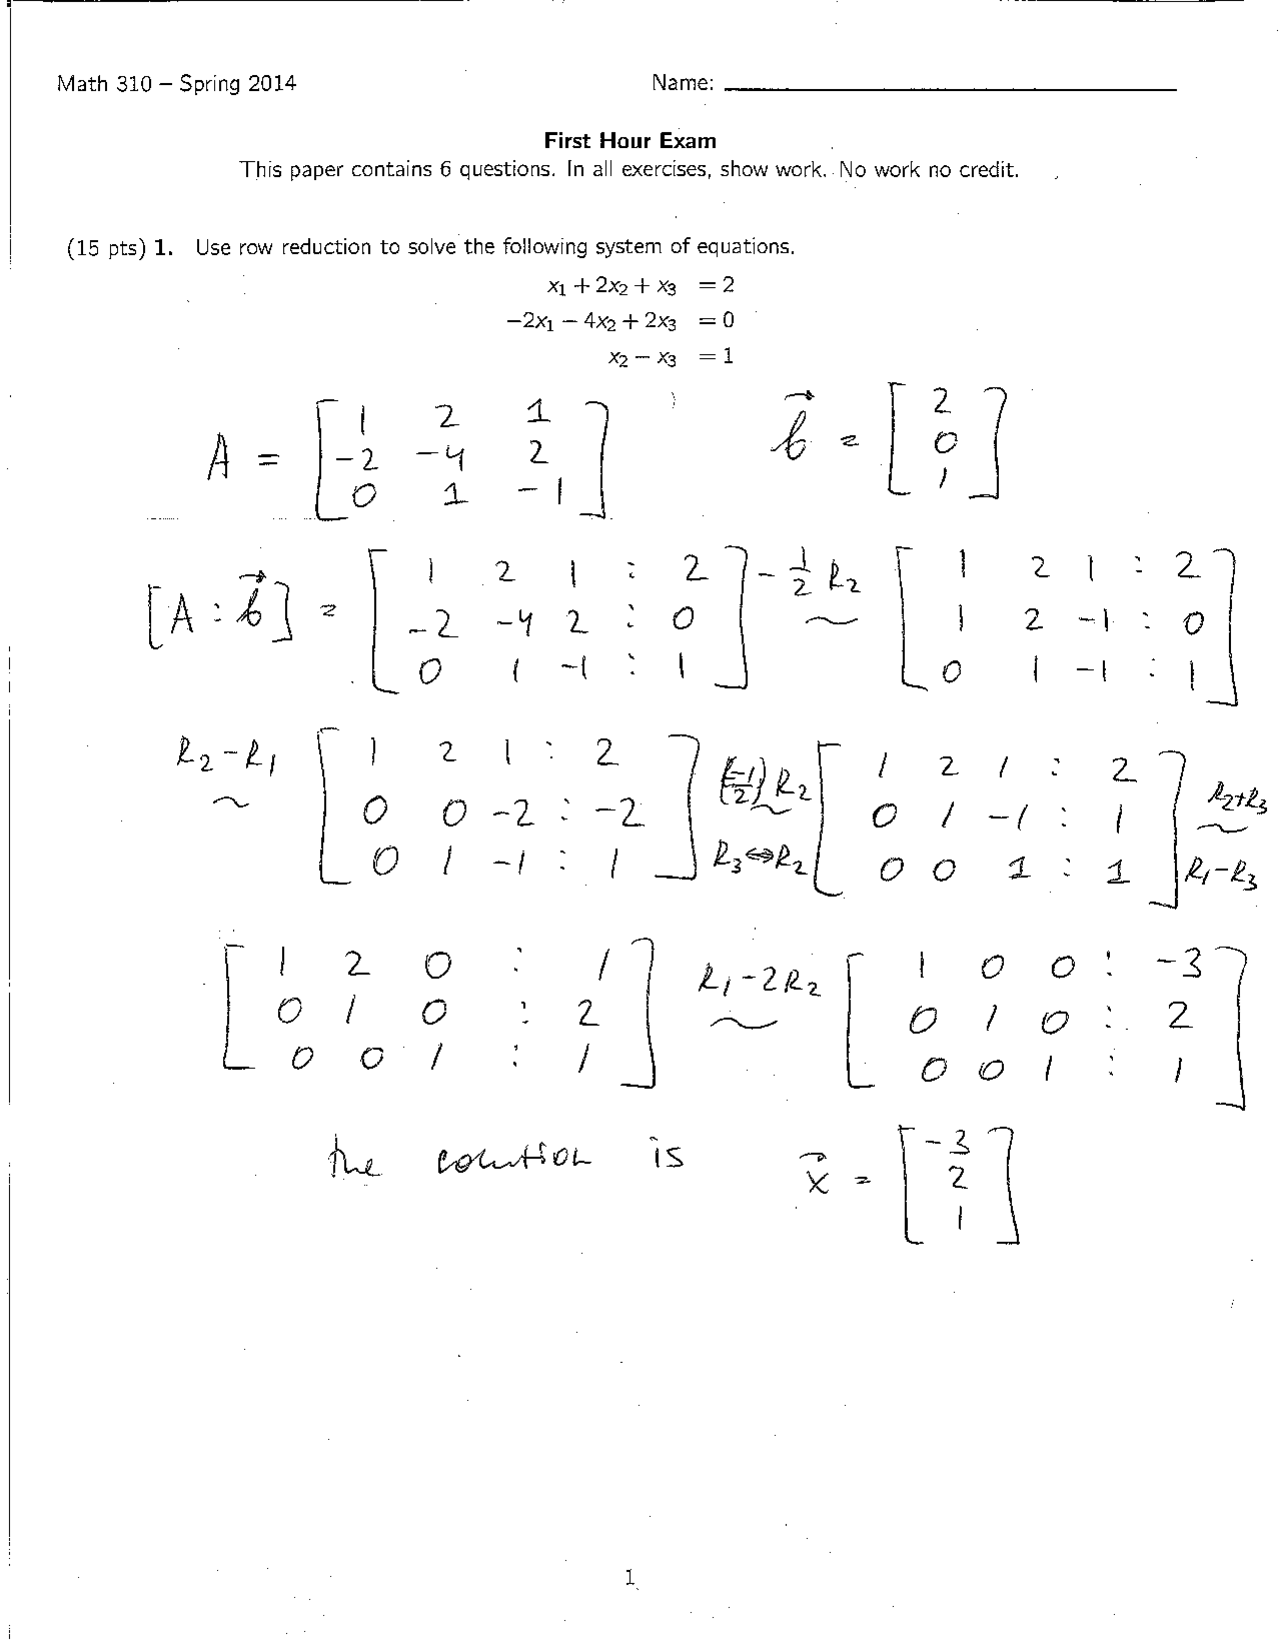 Math 310 – Spring 2014 Name:
First Hour Exam
This paper contains 6 questions. In all exercises, show work. No work no credit.
(15 pts) 1. Use row reduction to solve the following system of equations.
x₁ + 2x₂ + x₃ = 2
−2x₁ − 4x₂ + 2x₃ = 0
x₂ − x₃ = 1
A = [1 2 1; -2 -4 2; 0 1 -1] b⃗ = [2; 0; 1]
[A : b⃗] = [1 2 1 : 2; -2 -4 2 : 0; 0 1 -1 : 1] -1/2 R₂ ~ [1 2 1 : 2; 1 2 -1 : 0; 0 1 -1 : 1]
R₂-R₁ ~ [1 2 1 : 2; 0 0 -2 : -2; 0 1 -1 : 1] (-1/2) R₂ ~ R₃⇔R₂ [1 2 1 : 2; 0 1 -1 : 1; 0 0 1 : 1] R₂+R₃ ~ R₁-R₃
[1 2 0 : 1; 0 1 0 : 2; 0 0 1 : 1] R₁-2R₂ ~ [1 0 0 : -3; 0 1 0 : 2; 0 0 1 : 1]
the solution is x⃗ = [-3; 2; 1]
1